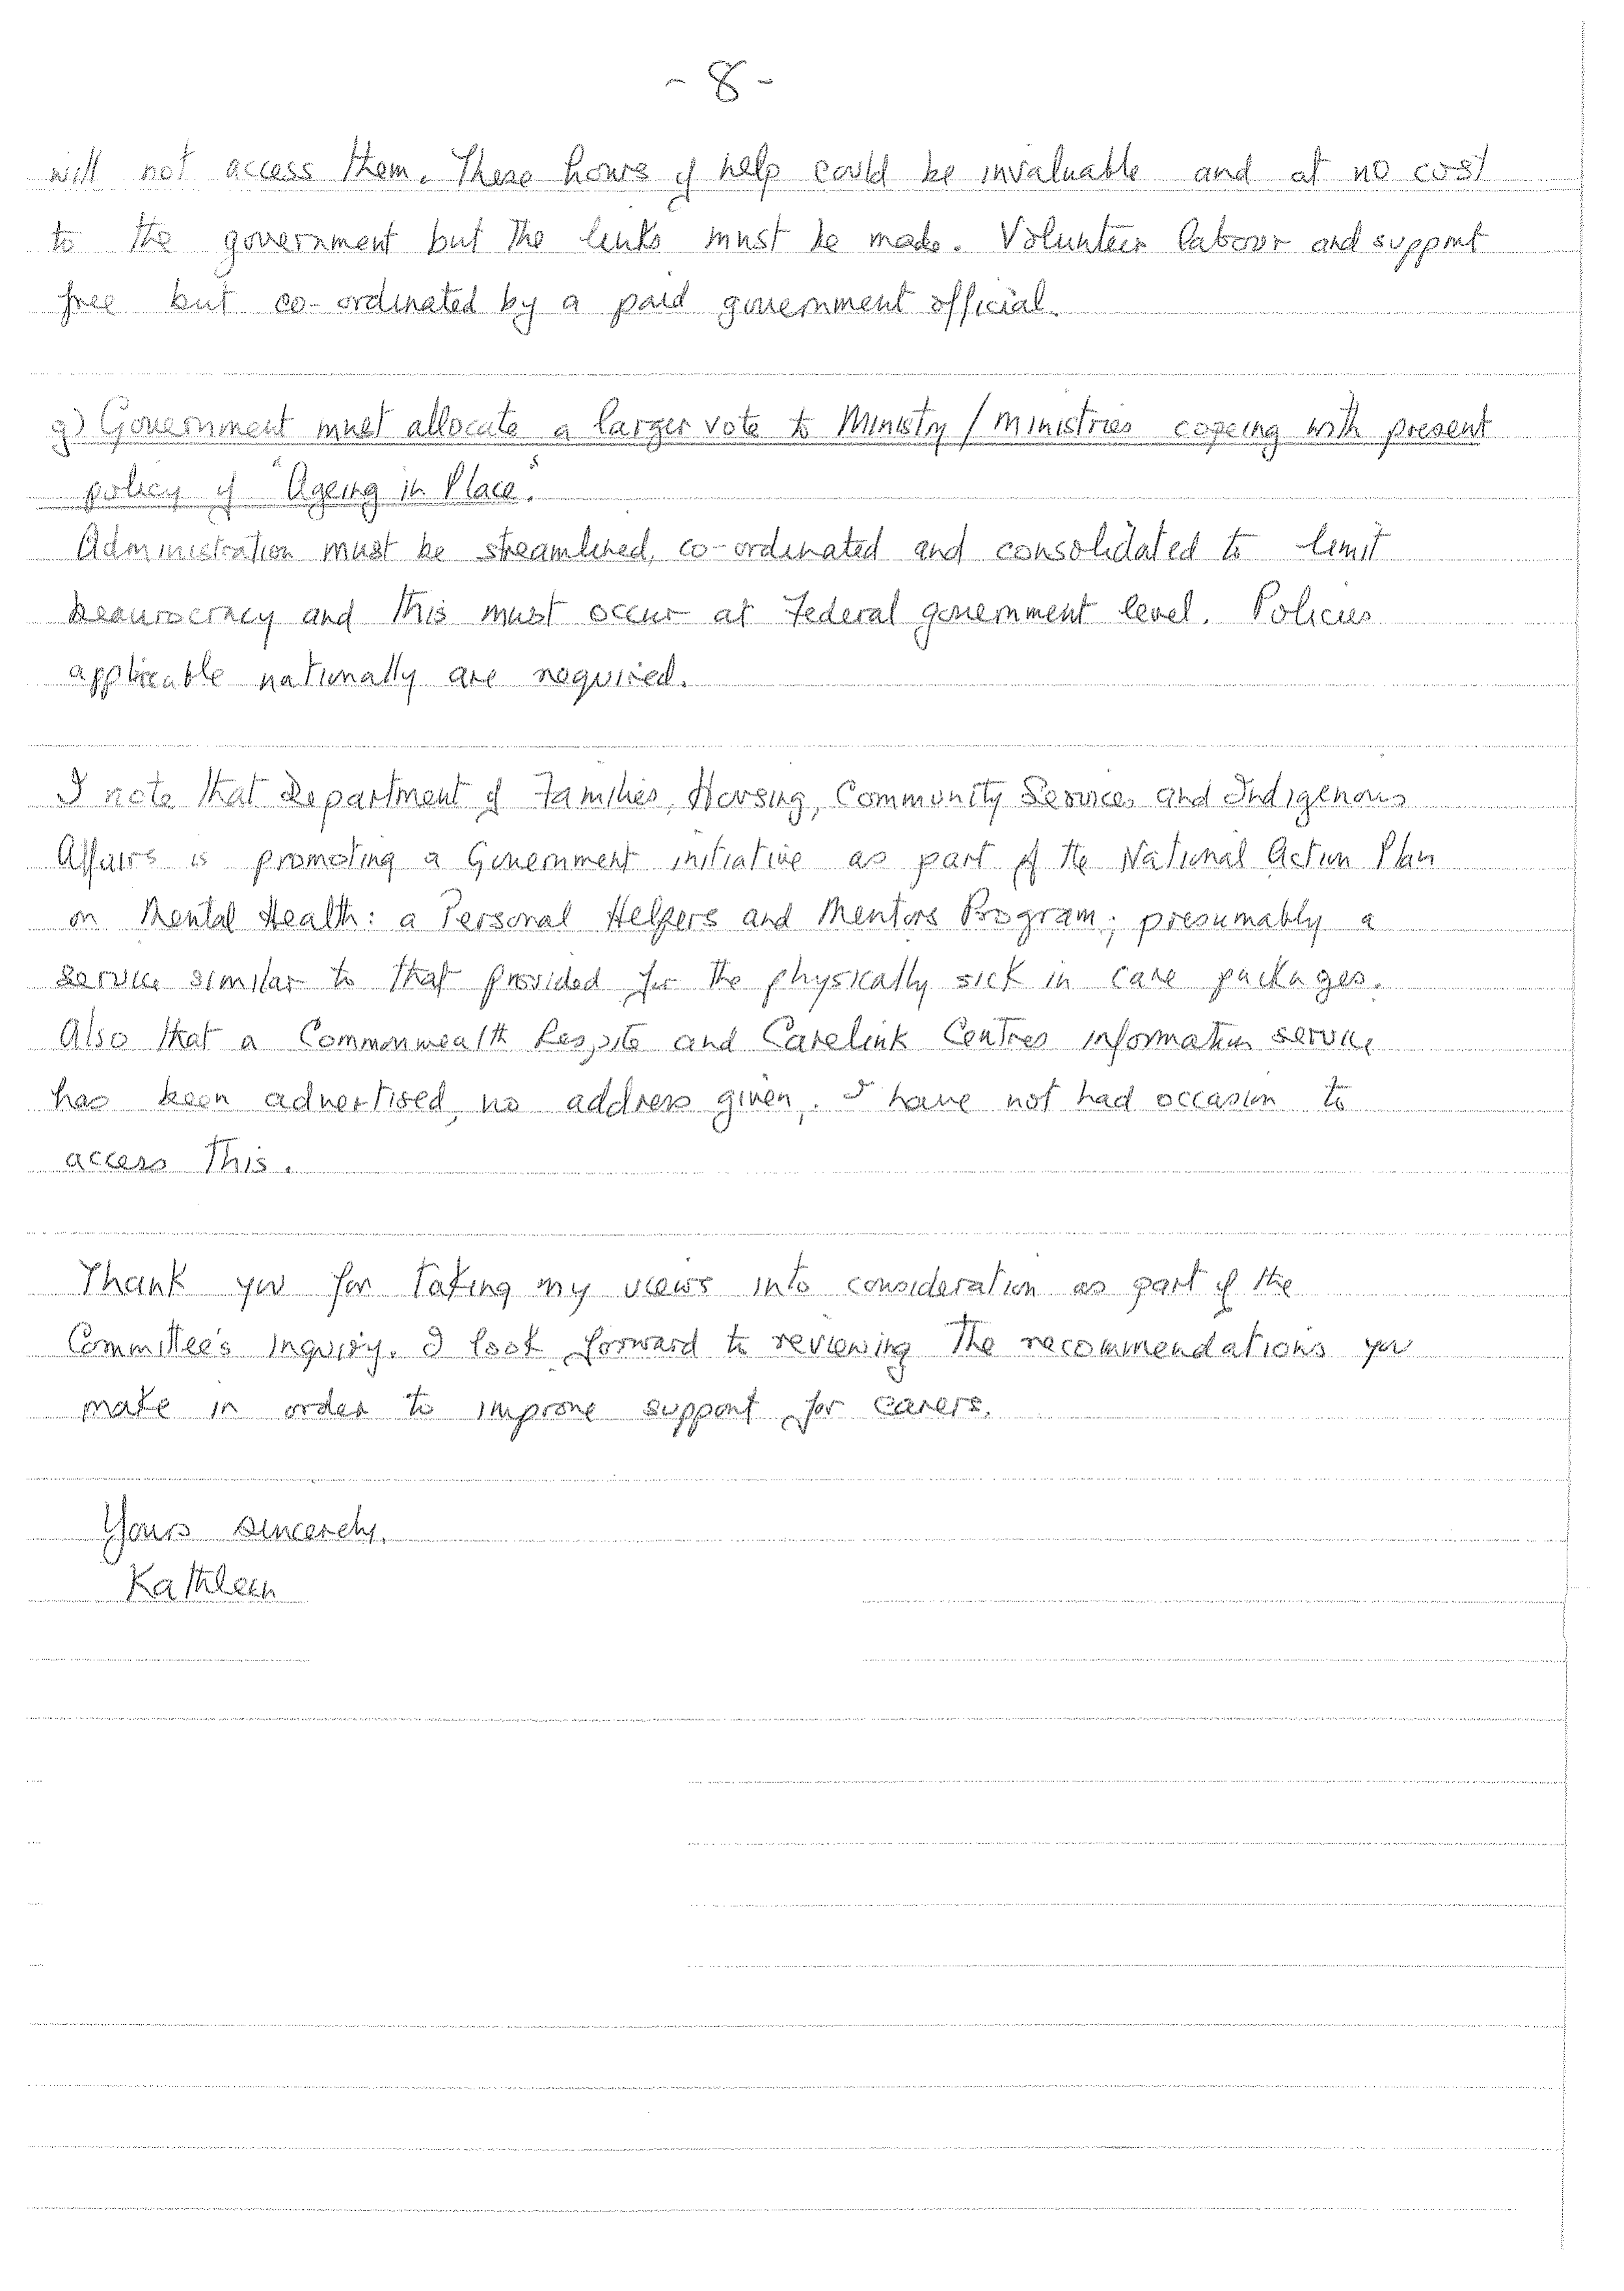 - 8 -
will not access them. These hours of help could be invaluable and at no cost
to the government but the links must be made. Volunteer labour and support
free but co-ordinated by a paid government official.
g) Government must allocate a larger vote to Ministry / Ministries copeing with present
policy of "Ageing in Place".
Administration must be streamlined, co-ordinated and consolidated to limit
beaurocracy and this must occur at Federal government level. Policies
applicable nationally are required.
I note that Department of Families, Housing, Community Services and Indigenous
Affairs is promoting a Government initiative as part of the National Action Plan
on Mental Health: a Personal Helpers and Mentors Program; presumably a
service similar to that provided for the physically sick in care packages.
Also that a Commonwealth Respite and Carelink Centres information service
has been advertised, no address given. I have not had occasion to
access this.
Thank you for taking my views into consideration as part of the
Committee's Inquiry. I look forward to reviewing the recommendations you
make in order to improve support for carers.
Yours sincerely,
Kathleen